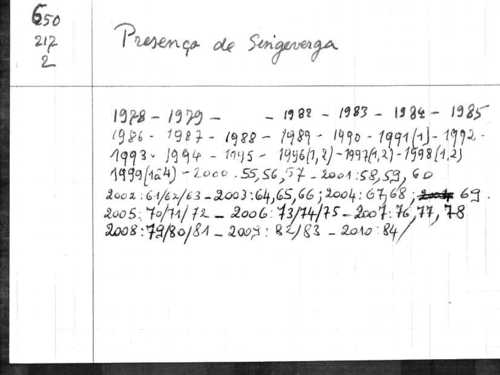 650
217
2
Presença de Singeverga
1978 - 1979 - - 1982 - 1983 - 1984 - 1985
1986 - 1987 - 1988 - 1989 - 1990 - 1991(1) - 1992 -
1993 - 1994 - 1995 - 1996(1,2) - 1997(1,2) - 1998(1,2)
1999(1a4) - 2000: 55,56,57 - 2001: 58,59, 60
2002: 61/62/63 - 2003: 64,65,66; 2004: 67,68; 69.
2005: 70/71/72 - 2006: 73/74/75 - 2007: 76,77,78
2008: 79/80/81 - 2009: 82/83 - 2010: 84/